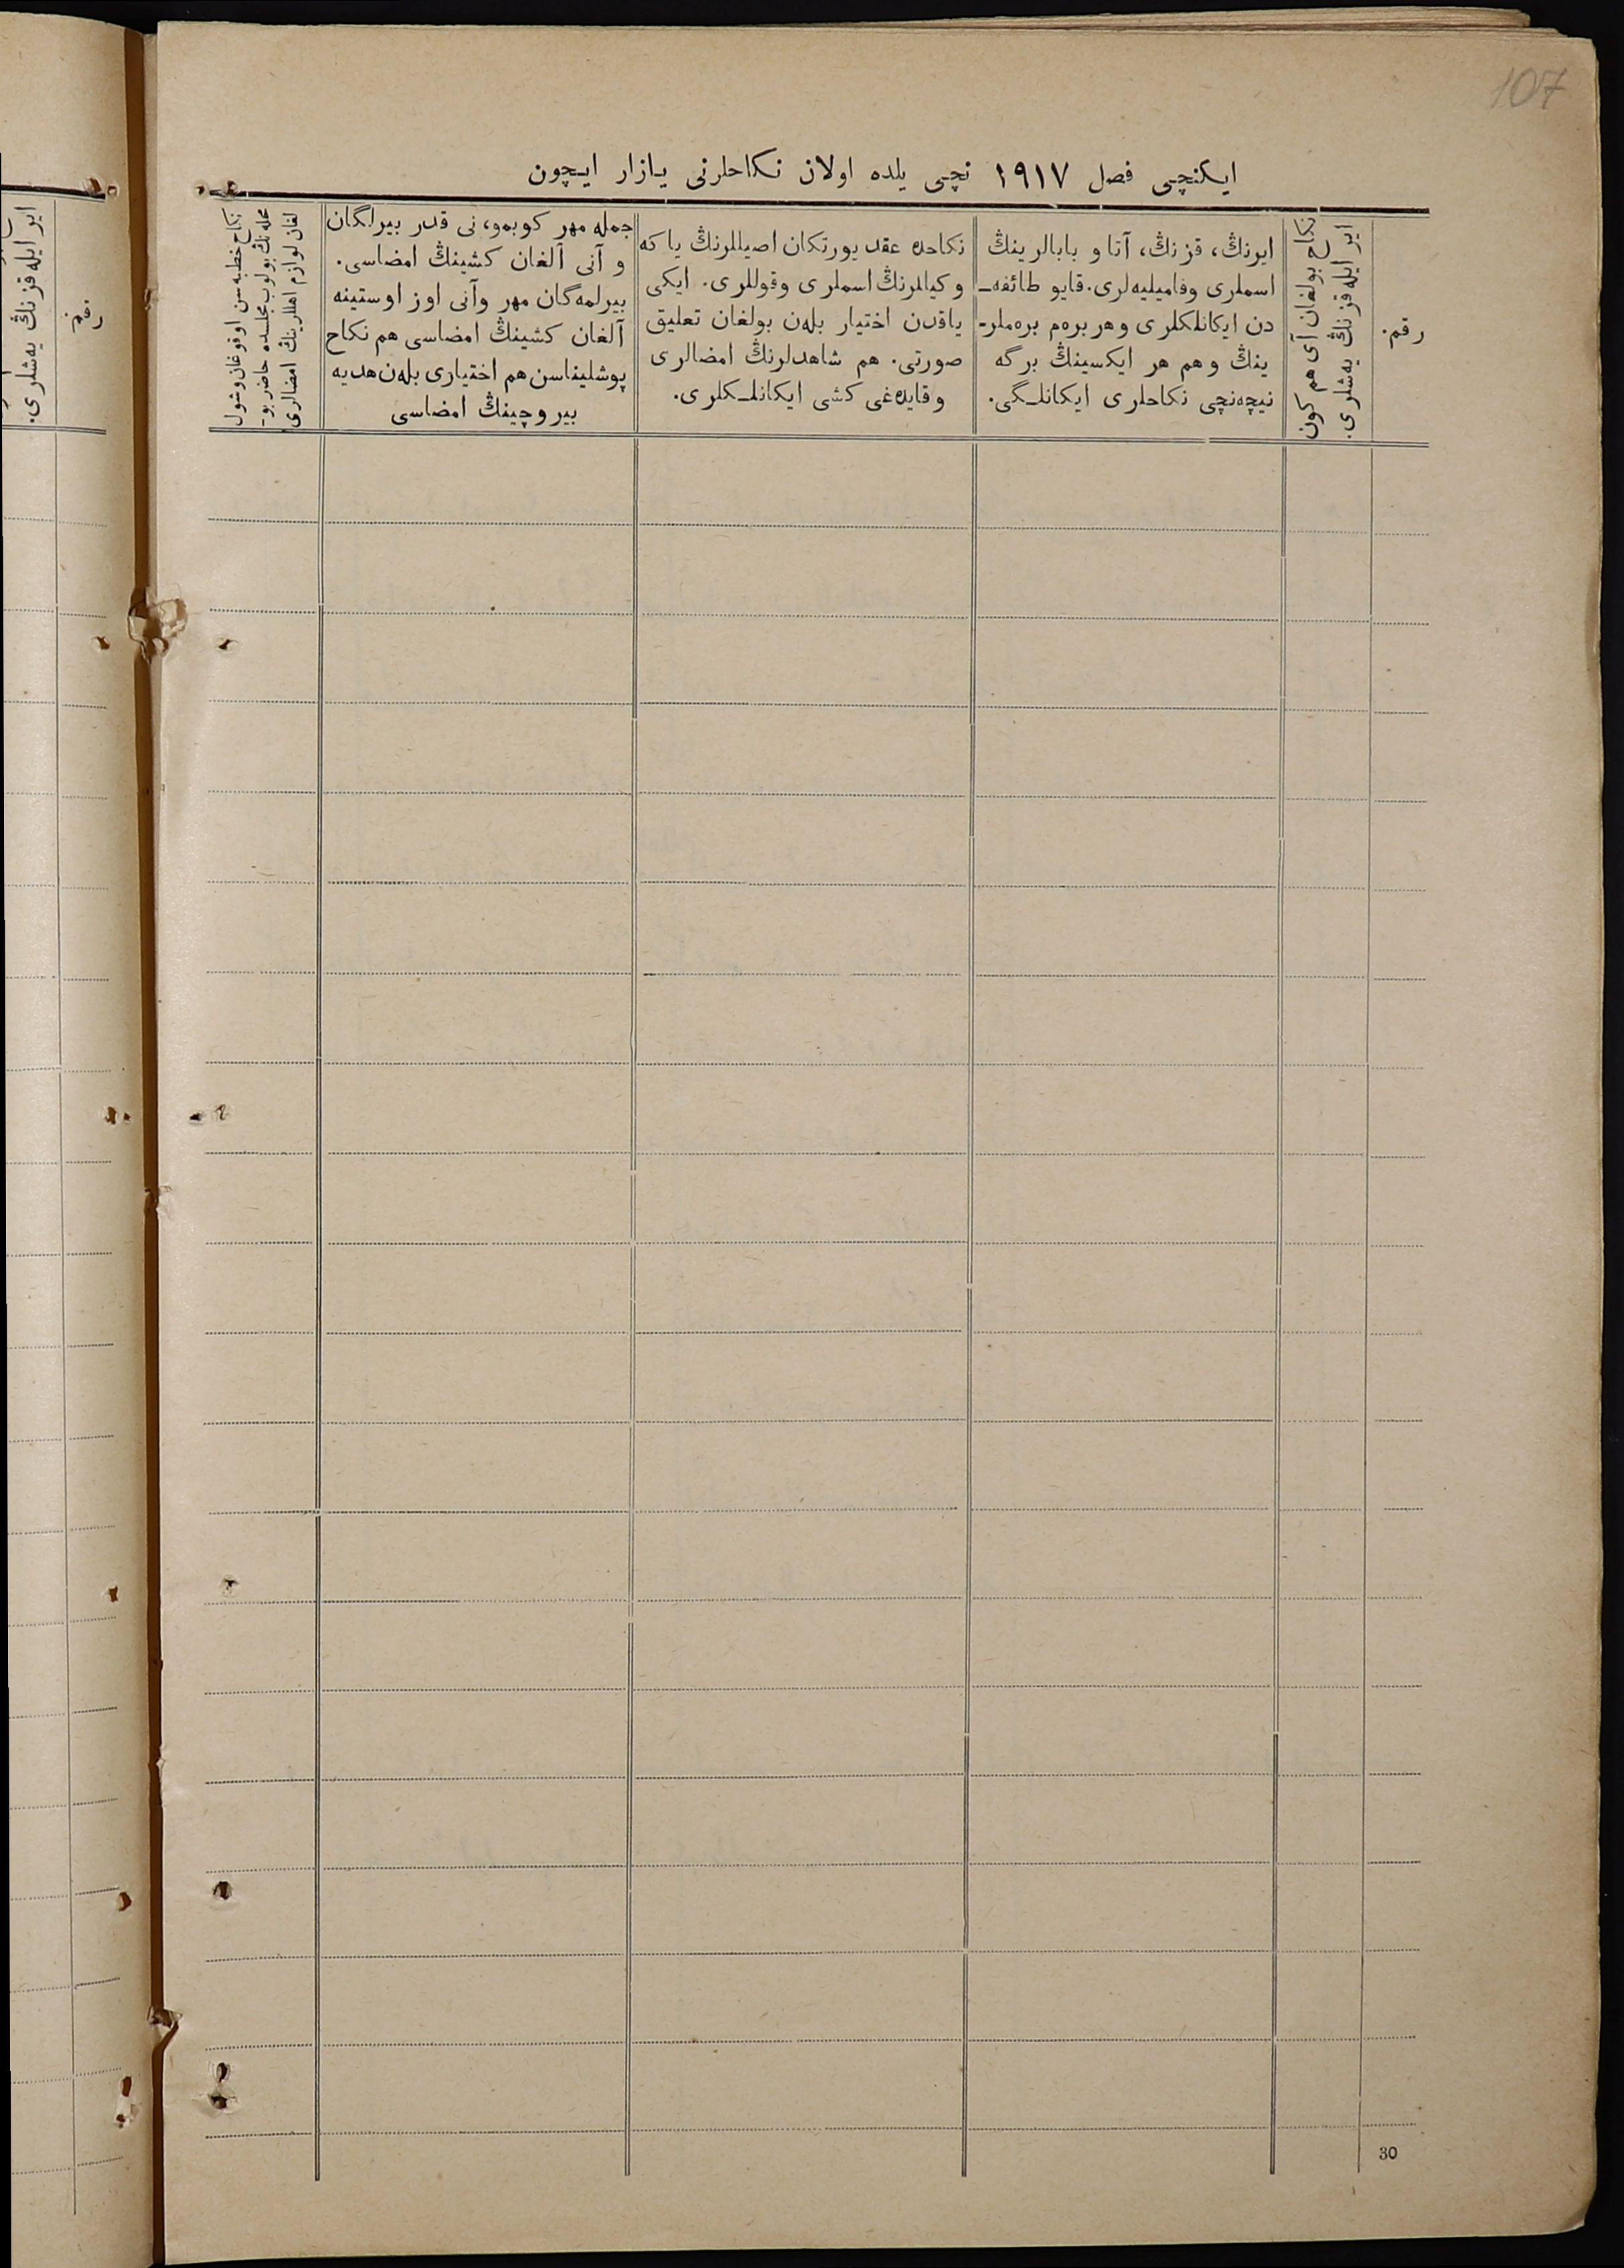 107
ایکنچی فصل ١٩١٧ نچی یلده اولان نکاحلرنی یازار ایچون
رقم.
ایر ایله قزنڭ یه‌شلری.
نکاح بولغان آی هم کون
ایرنڭ، قزنڭ، آتا و بابالرینڭ
اسملری وفامیلیه‌لری. قایو طائفه‌ـ
دن ایکانلکلری وهر بره‌م بره‌ملر-
ینڭ وهم هر ایکسینڭ برگه
نیچه‌نچی نکاحلری ایکانلـگی.
نکاحده عقد یورتکان اصیللرنڭ یا که
وکیللرنڭ اسملری وقوللری. ایکی
یاقدن اختیار بله‌ن بولغان تعلیق
صورتی. هم شاهدلرنڭ امضالری
وقایده‌غی کشی ایکانلـکلری.
جمله مهر کوبمو، نی قدر بیرلگان
و آنی آلغان کشینڭ امضاسی.
بیرلمه‌گان مهر وآنی اوز اوستینه
آلغان کشینڭ امضاسی هم نکاح
پوشلیناسن هم اختیاری بله‌ن هدیه
بیروچینڭ امضاسی
نکاح خطبه‌سن اوقوغان وشول
محله‌نڭ بولوب مجلسده حاضر بو-
لغان لوازم اهللرینڭ امضالری
رقم.
ایر ایله قزنڭ یه‌شلری.
30